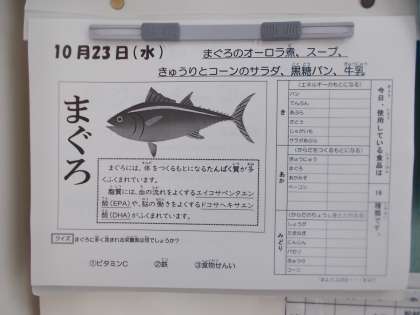 10月23日(水)
まぐろのオーロラ煮、スープ、
きゅうりとコーンのサラダ、黒糖パン、牛乳
まぐろ
まぐろには、体をつくるもとになるたんぱく質が多
くふくまれています。
脂質には、血の流れをよくするエイコサペンタエン
酸(EPA)や、脳の働きをよくするドコサヘキサエン
酸(DHA)がふくまれています。
クイズ まぐろに多く含まれる栄養素は何でしょうか?
①ビタミンC ②鉄 ③食物せんい
今日、使用している食品は
16
種類です。
き
(エネルギーのもとになる)
パン
でんぷん
あぶら
さとう
じゃがいも
サラダあぶら
あか
(からだをつくるもとになる)
ぎゅうにゅう
まぐろ
ベーコン
みどり
しょうが
たまねぎ
にんじん
パセリ
きゅうり
コーン